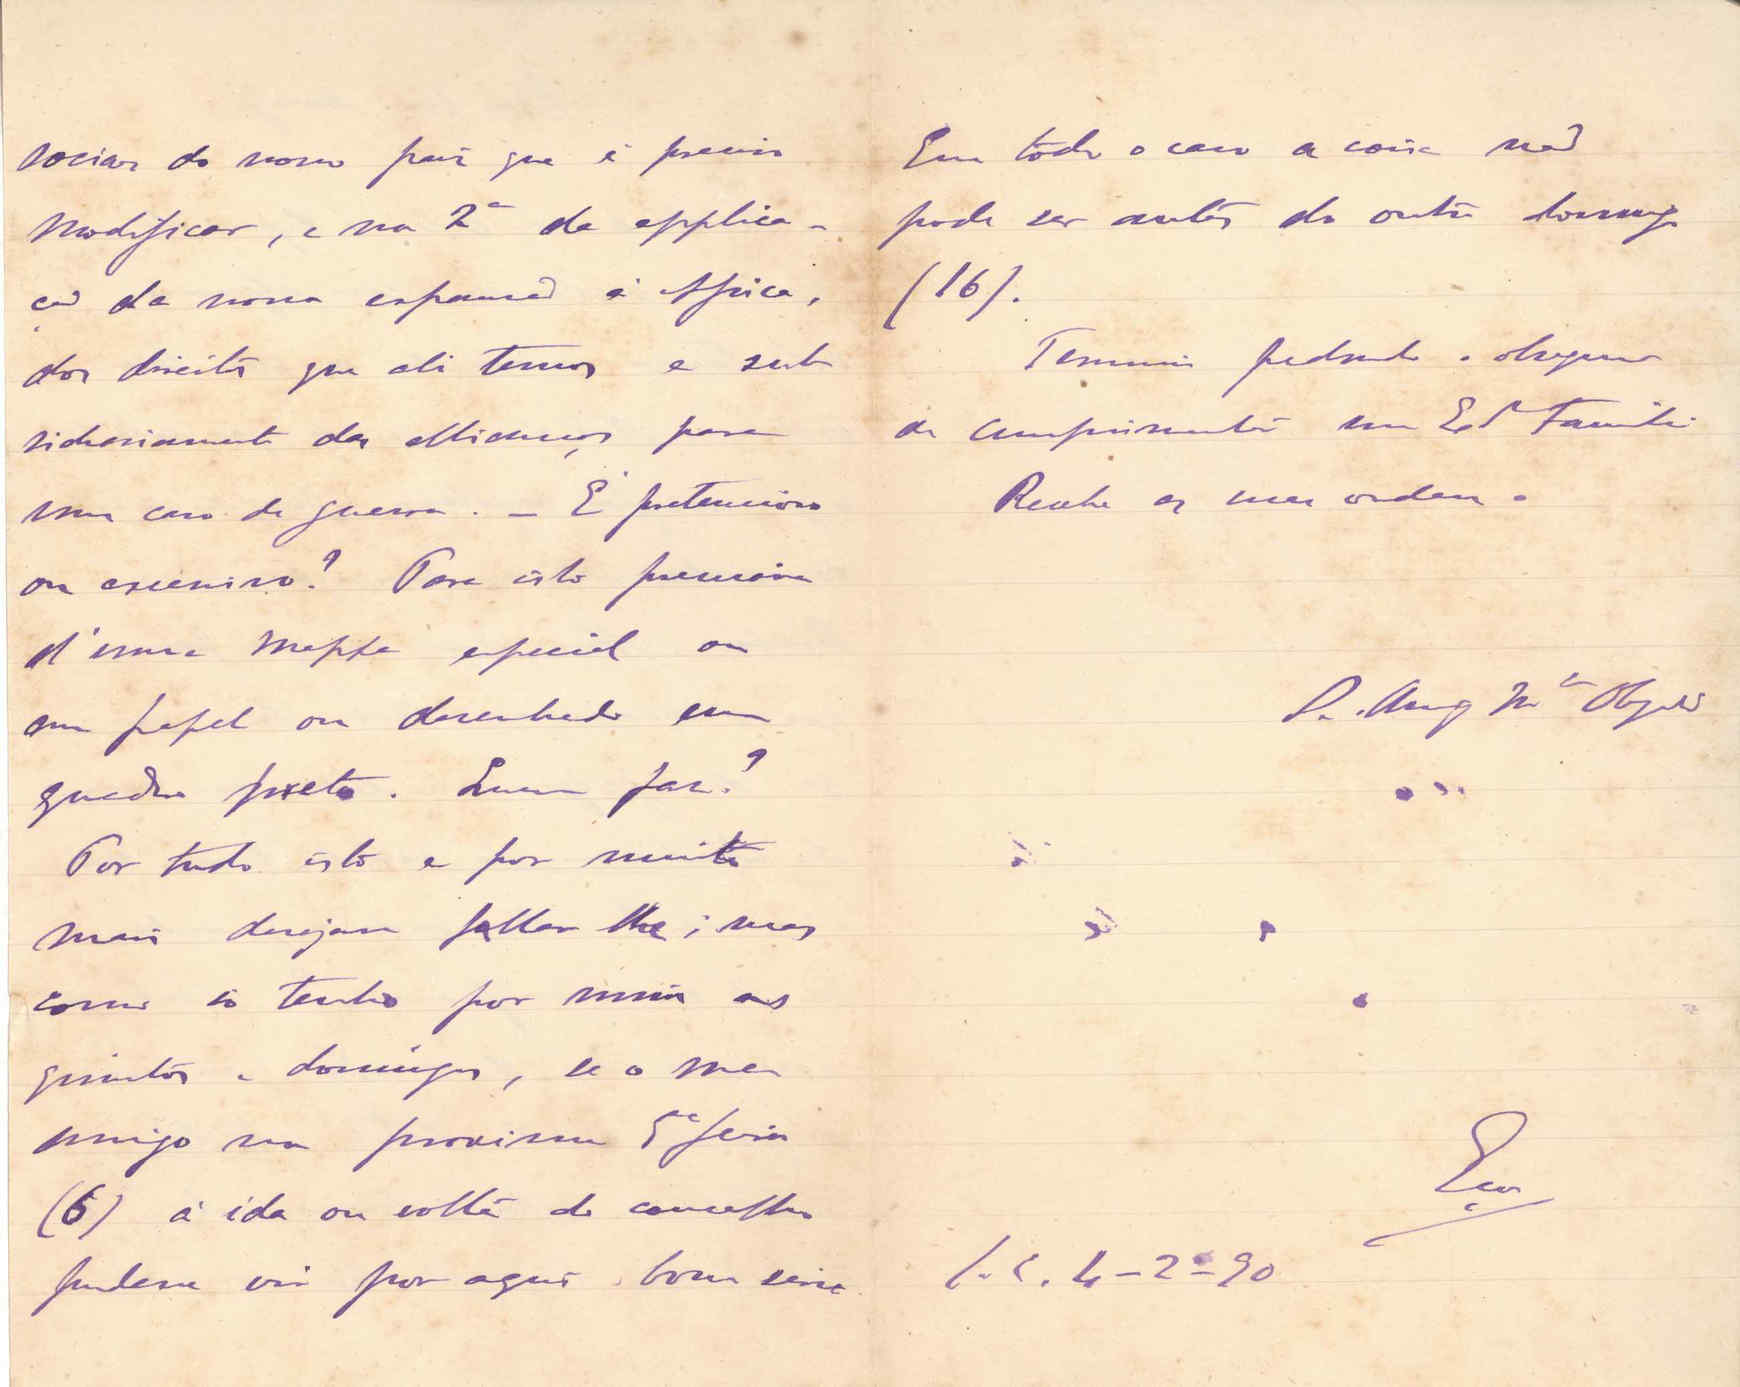 sociaes do nosso paiz que é preciso
modificar, e na 2ª da applica-
ção da nossa expansão á Africa,
dos direitos que ali temos e sub
sidiariamente das allianças para
um caso de guerra. — É pretencioso
ou excessivo? Para isto precisava
d'uma mappa especial ou
em papel ou desenhado em
quadro preto. Quem faz?
Por tudo isto e por muito
mais desejava fallar lhe; mas
como só tenho por mim as
quintas e domingos, se o meu
amigo na proxima 5ª feira
(6) á ida ou volta do conselho
pudesse vir por aqui bom seria
Em todo o caso a coisa não
pode ser antes do outro domingo
(16).
Termino pedindo o obsequio
de cumprimentar sua Exª Familia
Recebe as suas ordens o
4-2-90